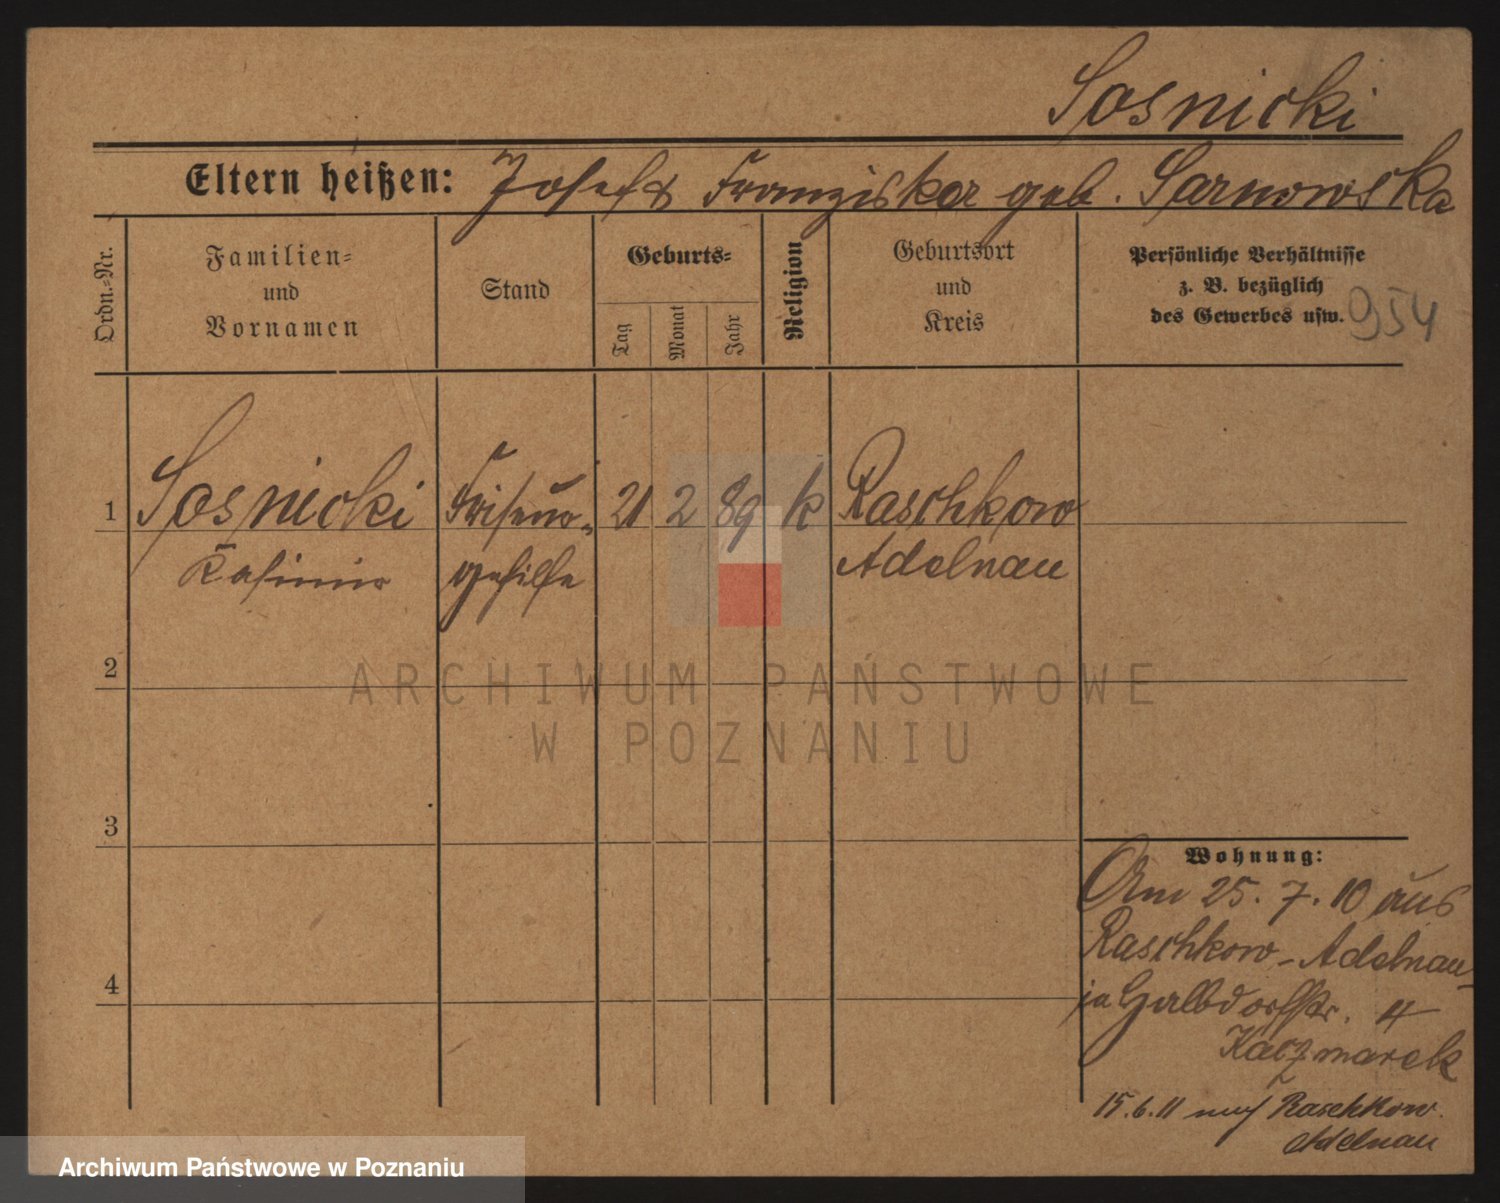 Sosnicki
Eltern heißen: Josef & Franziska geb. Sarnowska
Ordn.-Nr.
Familien-
und
Vornamen
Stand
Geburts-
Tag
Monat
Jahr
Religion
Geburtsort
und
Kreis
Persönliche Verhältnisse
z. B. bezüglich
des Gewerbes usw.
954
1 Sosnicki Friseur- 21 2 89 k Raschkow
Kasimir gehilfe Adelnau
2
3
4
Wohnung:
Am 25. 7. 10 aus
Raschkow - Adelnau
in 4
Kaczmarek
15.6.11 nach Raschkow.
Adelnau
ARCHIWUM PAŃSTWOWE
W POZNANIU
Archiwum Państwowe w Poznaniu